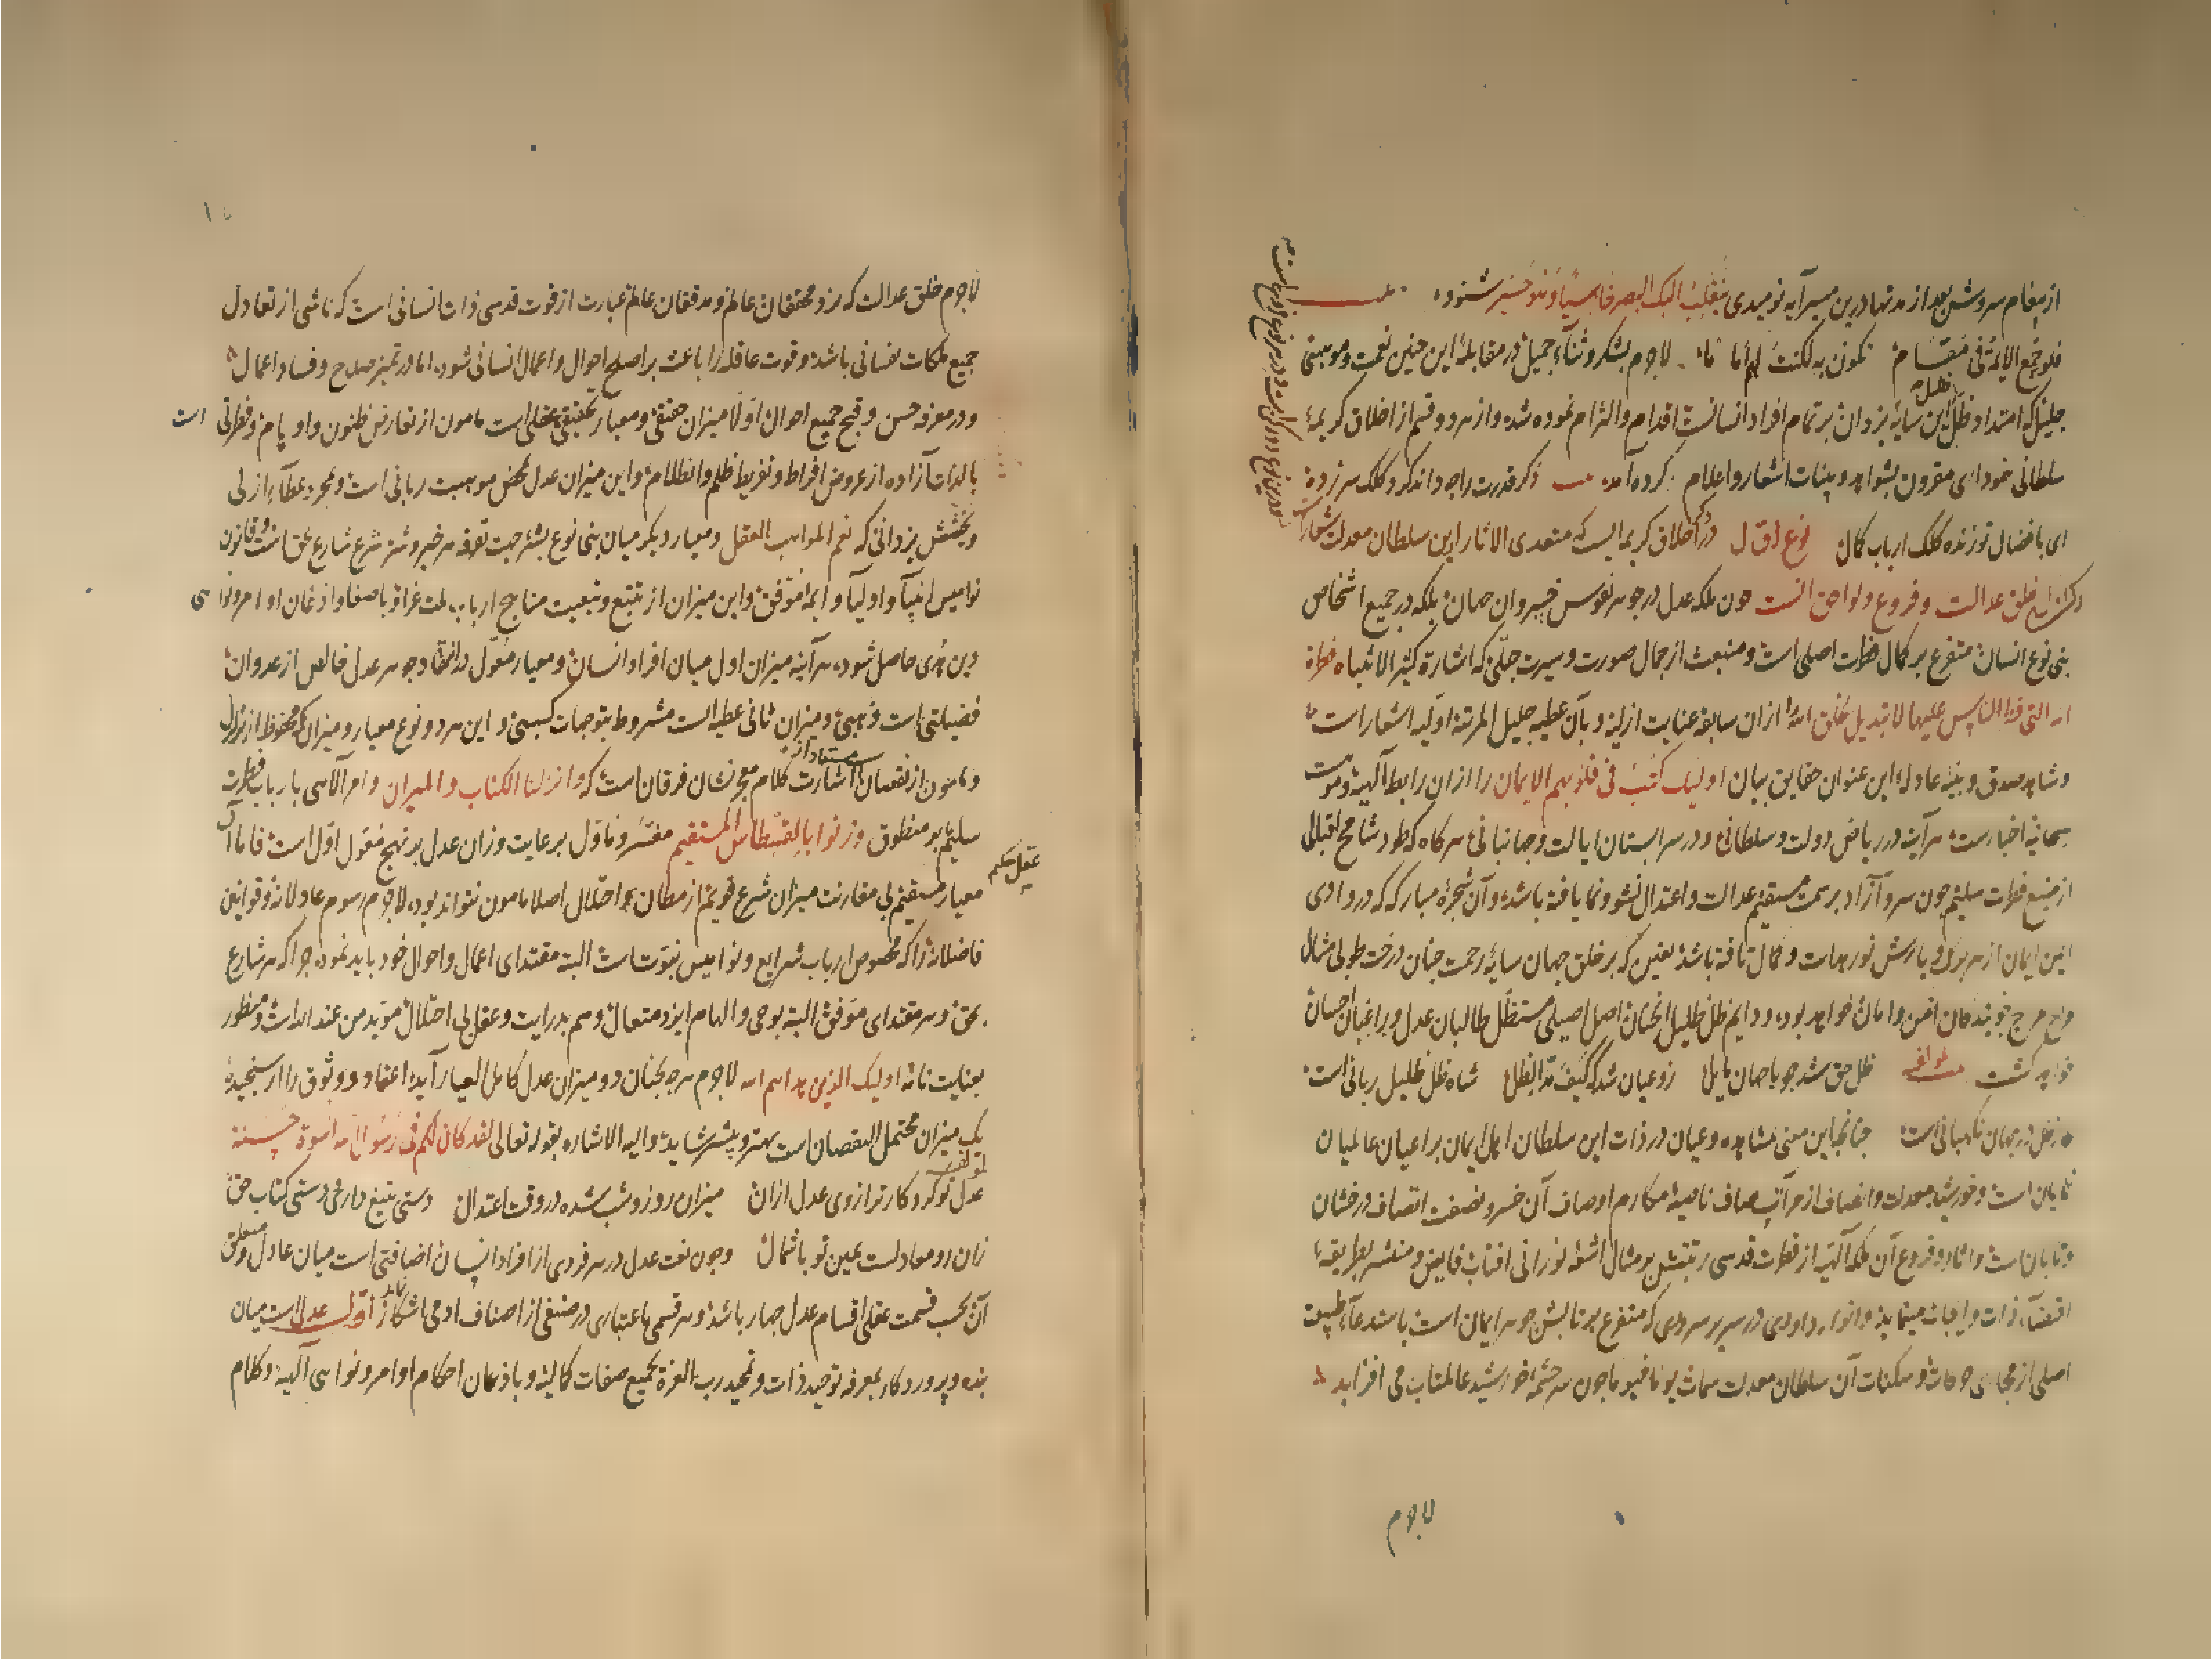 از پیغام سروش بعد از مدتها درین مسیر آیه نومیدی ینقلب الیک البصر خاسئا و هو حسیر شنوده
فلو جمع الایمة فی مقام تکون به لکنت لهم اماما لاجرم بشکر و ثناء جمیل در مقابلهٔ این چنین نعمت و موهبتی
جلیل که امتداد ظل این سایهٔ یزدان بر تمام افراد انسانست اقدام و التزام نموده شد و از هر دو قسم از اخلاق کریمهٔ
سلطانی خود ای مقرون بشواهد و بینات اشعار و اعلام کرده آمد ذکر قدرت راجه داند کرد کلک سرزده
ای بافضال تو زنده کلک ارباب کمال نوع اول در ذکر اخلاق کریمه ایست که متعدی الاثار ازین سلطان معدلت شعار است
خلق عدالت و فروع و لواحق انست چون ملکه عدل در جوهر نفوس خسروان جهان بلکه در جمیع اشخاص
بنی نوع انسان متفرع بر کمال فطرت اصلی است و منبعث از جمال صورت و سیرت جبلی که اشارة کثیر الانتباه فطرة
الله التی فطر الناس علیها لا تبدیل لخلق الله ازان سابقه عنایت ازلیه و بآن عطیه جلیل المرتبه اولیه اشعار است
و شاهد صدق و بینه عادله این عنوان حقایق بیان اولیک کتب فی قلوبهم الایمان را ازان رابطه الهیه و موهبت
سبحانیه اخبارست هر آینه در ریاض دولت و سلطانی و در سرابستان ایالت و جهانبانی هر گاه که طود شامخ اقبالی
از منبع فطرت سلیم چون سرو آزاد بر سمت مستقیم عدالت و اعتدال نشو و نما یافته باشد و آن شجرهٔ مبارکه که در وادی
ایمن ایمان از هر برگ و بارش نور هدایت و کمال تافته باشد یقین که بر خلق جهان سایهٔ رحمت چنان درخت طوبی مثال
امن و امان خواهد بود و دایم ظل ظلیل انچنان اصل اصیلی مستظل طالبان عدل و راغبان احسان
خواهد گشت لمؤلفه ظل حق شد چو با جهان مایل زو عیان شد که کیف مد الظل شاه ظل ظلیل ربانی است
در جهان نگهبانی است چنانچه این معنی مشاهده و عیان در ذات این سلطان اهل ایمان بر اعیان عالمیان
نمایان است و خورشید معدلت و انصاف از مرآت صاف ناصیهٔ مکارم اوصاف آن خسرو نصفت اتصاف درخشان
و تابان است و اثار و فروع آن ملکه الهیه از فطرت قدسی رتبتش بر مثال اشعهٔ نورانی افتاب فایض و منتشر بطریقهٔ
اقتضاء ذات و ایجاب مینماید و انوار داودی در سریر سروری که متفرع بر تابش جوهر ایمان است باستدعاء طبیعت
اصلی از مجاری حرکات و سکنات آن سلطان معدلت سمات یوما فیوما چون سرچشمه خورشید عالمتاب می افزاید
لاجرم
لاجرم خلق عدالت که نزد محققان عالم و مدققان عالم عبارت از قوت قدسی ذات انسانی است که ناشی از تعادل
جمیع ملکات نفسانی باشد و قوت عاقله را باعث بر اصلح احوال و اعمال انسانی شود اما در تمیز صلاح و فساد اعمال
و در معرفه حسن و قبح جمیع احوال اولا میزان حقیقی و معیار تحقیقی عقلی است مامون از تعارض ظنون و اوهام و فطرتی است
بالذات آزاده از عروض افراط و تفریط ظلم و انظلام و این میزان عدل محض موهبت ربانی است و مجرد عطاء ازلی
و بخشش یزدانی که نعم المواهب العقل و معیار دیگر میان بنی نوع بشر جهت تفرقه هر خیر و شر شرع شارع حق است و قانون
نوامیس انبیا و اولیا و ایمه موفق و این میزان از تتبع و تبعیت مناهج ارباب ملت غرا و باصغا و اذعان اوامر و نواهی
دین هدی حاصل شود هر آینه میزان اول میان افراد انسان و معیار معول در انتقاد جوهر عدل خالص از عدوان
فضیلتی است وهبی و میزان ثانی عطیه است مشروط بتوجهات کسبی و این هر دو نوع معیار و میزان که محفوظ از تزلزل
و مامون از نقصان است مستفاد از اشارت کلام معجز نشان فرقان است که و انزلنا الکتاب و المیزان و امر الهی بارباب فطرت
سلیم بر منطوق وزنوا بالقسطاس المستقیم مفسر و ماول برعایت وزان عدل بر نهج مقول اول است فاما آن
عقل حکیم
معیار مستقیم بی مقارنت میزان شرع قویم از مظان اختلال اصلا مامون نتواند بود لاجرم رسوم عادلانه و قوانین
فاضلانه را که مخصوص ارباب شرایع و نوامیس نبوت است البته مقتدای اعمال و احوال خود باید نمود چرا که هر شارع
بحق و هر مقتدای موفق البته بوحی و الهام ایزد متعال و هم بدرایت و عقل بی اختلال موید من عند الله است و منظور
بعنایت اولیک الذین هداهم الله لاجرم هر چه بچنان دو میزان عدل کامل العیار آید اعتماد و وثوق را از سنجیدهٔ
یک میزان محتمل النقصان است بهتر و بیشتر شاید و الیه الاشاره بقوله تعالی لقد کان لکم فی رسول الله اسوة حسنة
لمؤلفه
عدل تو کرد کار ترازوی عدل ازان میزان روز و شب شده در وقت اعتدال دستی بتیغ داری و دستی کتاب حق
زان رو معادلست یمین تو با شمال و چون نعت عدل در هر فردی از افراد انسان اضافتی است میان عادل و متعلق
آن بحسب قسمت عقلی اقسام عدل چهار باشد و هر قسمی باعتباری در صنفی از اصناف ادمی اشکار اول عدلی است میان
بنده و پروردگار بمعرفه توحید ذات و تمجید رب العزة بجمیع صفات کمالیه و باذعان احکام اوامر و نواهی الهیه و کلام